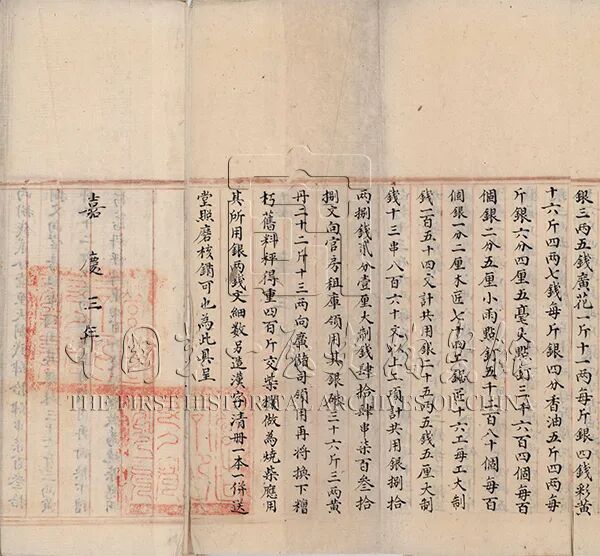 銀三兩五錢廣花一斤十一兩每斤銀四錢彩黃
十六斤四兩七錢每斤銀四分香油五斤四兩每
斤銀六分四厘五毫大點釘三千六百四個每百
個銀二分五厘小雨點釘五千二百八十個每百
個銀一分二厘木匠七十兩工鋸匠十六工每工大制
錢一百五十四文計共用銀二十五兩五錢五厘大制
錢十三串八百六十文以上二項計共用銀捌拾
兩捌錢貳分壹厘大制錢肆拾肆串柒百叁拾
捌文向官房租庫領用其銀硃三十六斤三兩黃
丹二十二斤十三兩向廣儲司領用再將換下糟
朽舊料秤得重四百斤交柴欄做為燒柴應用
其所用銀兩錢文細數另造漢字清冊一本一併送
堂照磨核銷可也為此具呈
嘉慶三年
中國第一歷史檔案館
THE FIRST HISTORICAL ARCHIVES OF CHINA